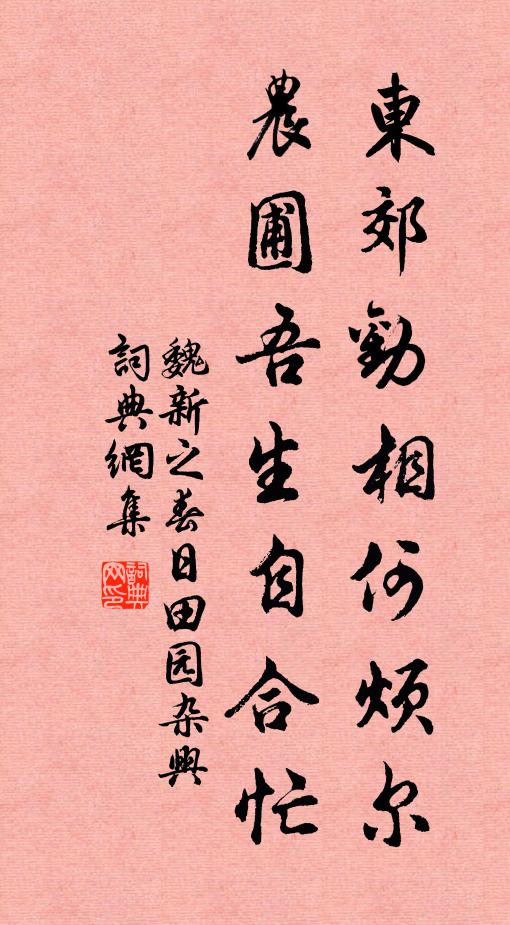 東郊勸相何煩尔
農圃吾生自合忙
魏新之春日田园杂興
詞典網集
詞典
网印